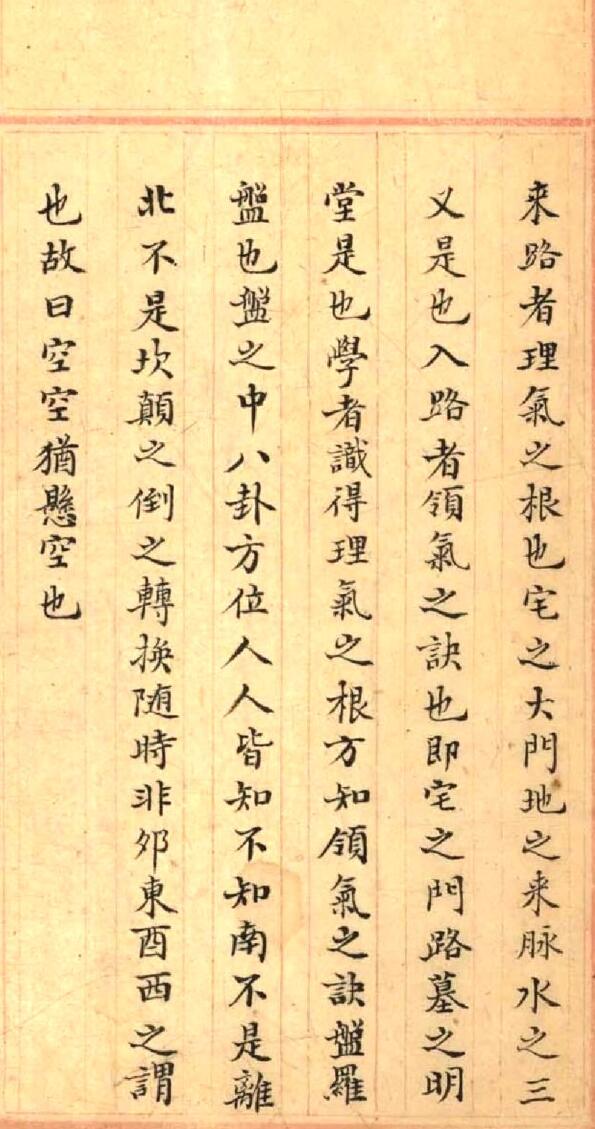 来路者理氣之根也宅之大門地之来脉水之三
义是也入路者領氣之訣也即宅之門路墓之明
堂是也學者識得理氣之根方知領氣之訣盤羅
盤也盤之中八卦方位人人皆知不知南不是離
北不是坎顛之倒之轉換随時非夘東酉西之謂
也故曰空空猶懸空也